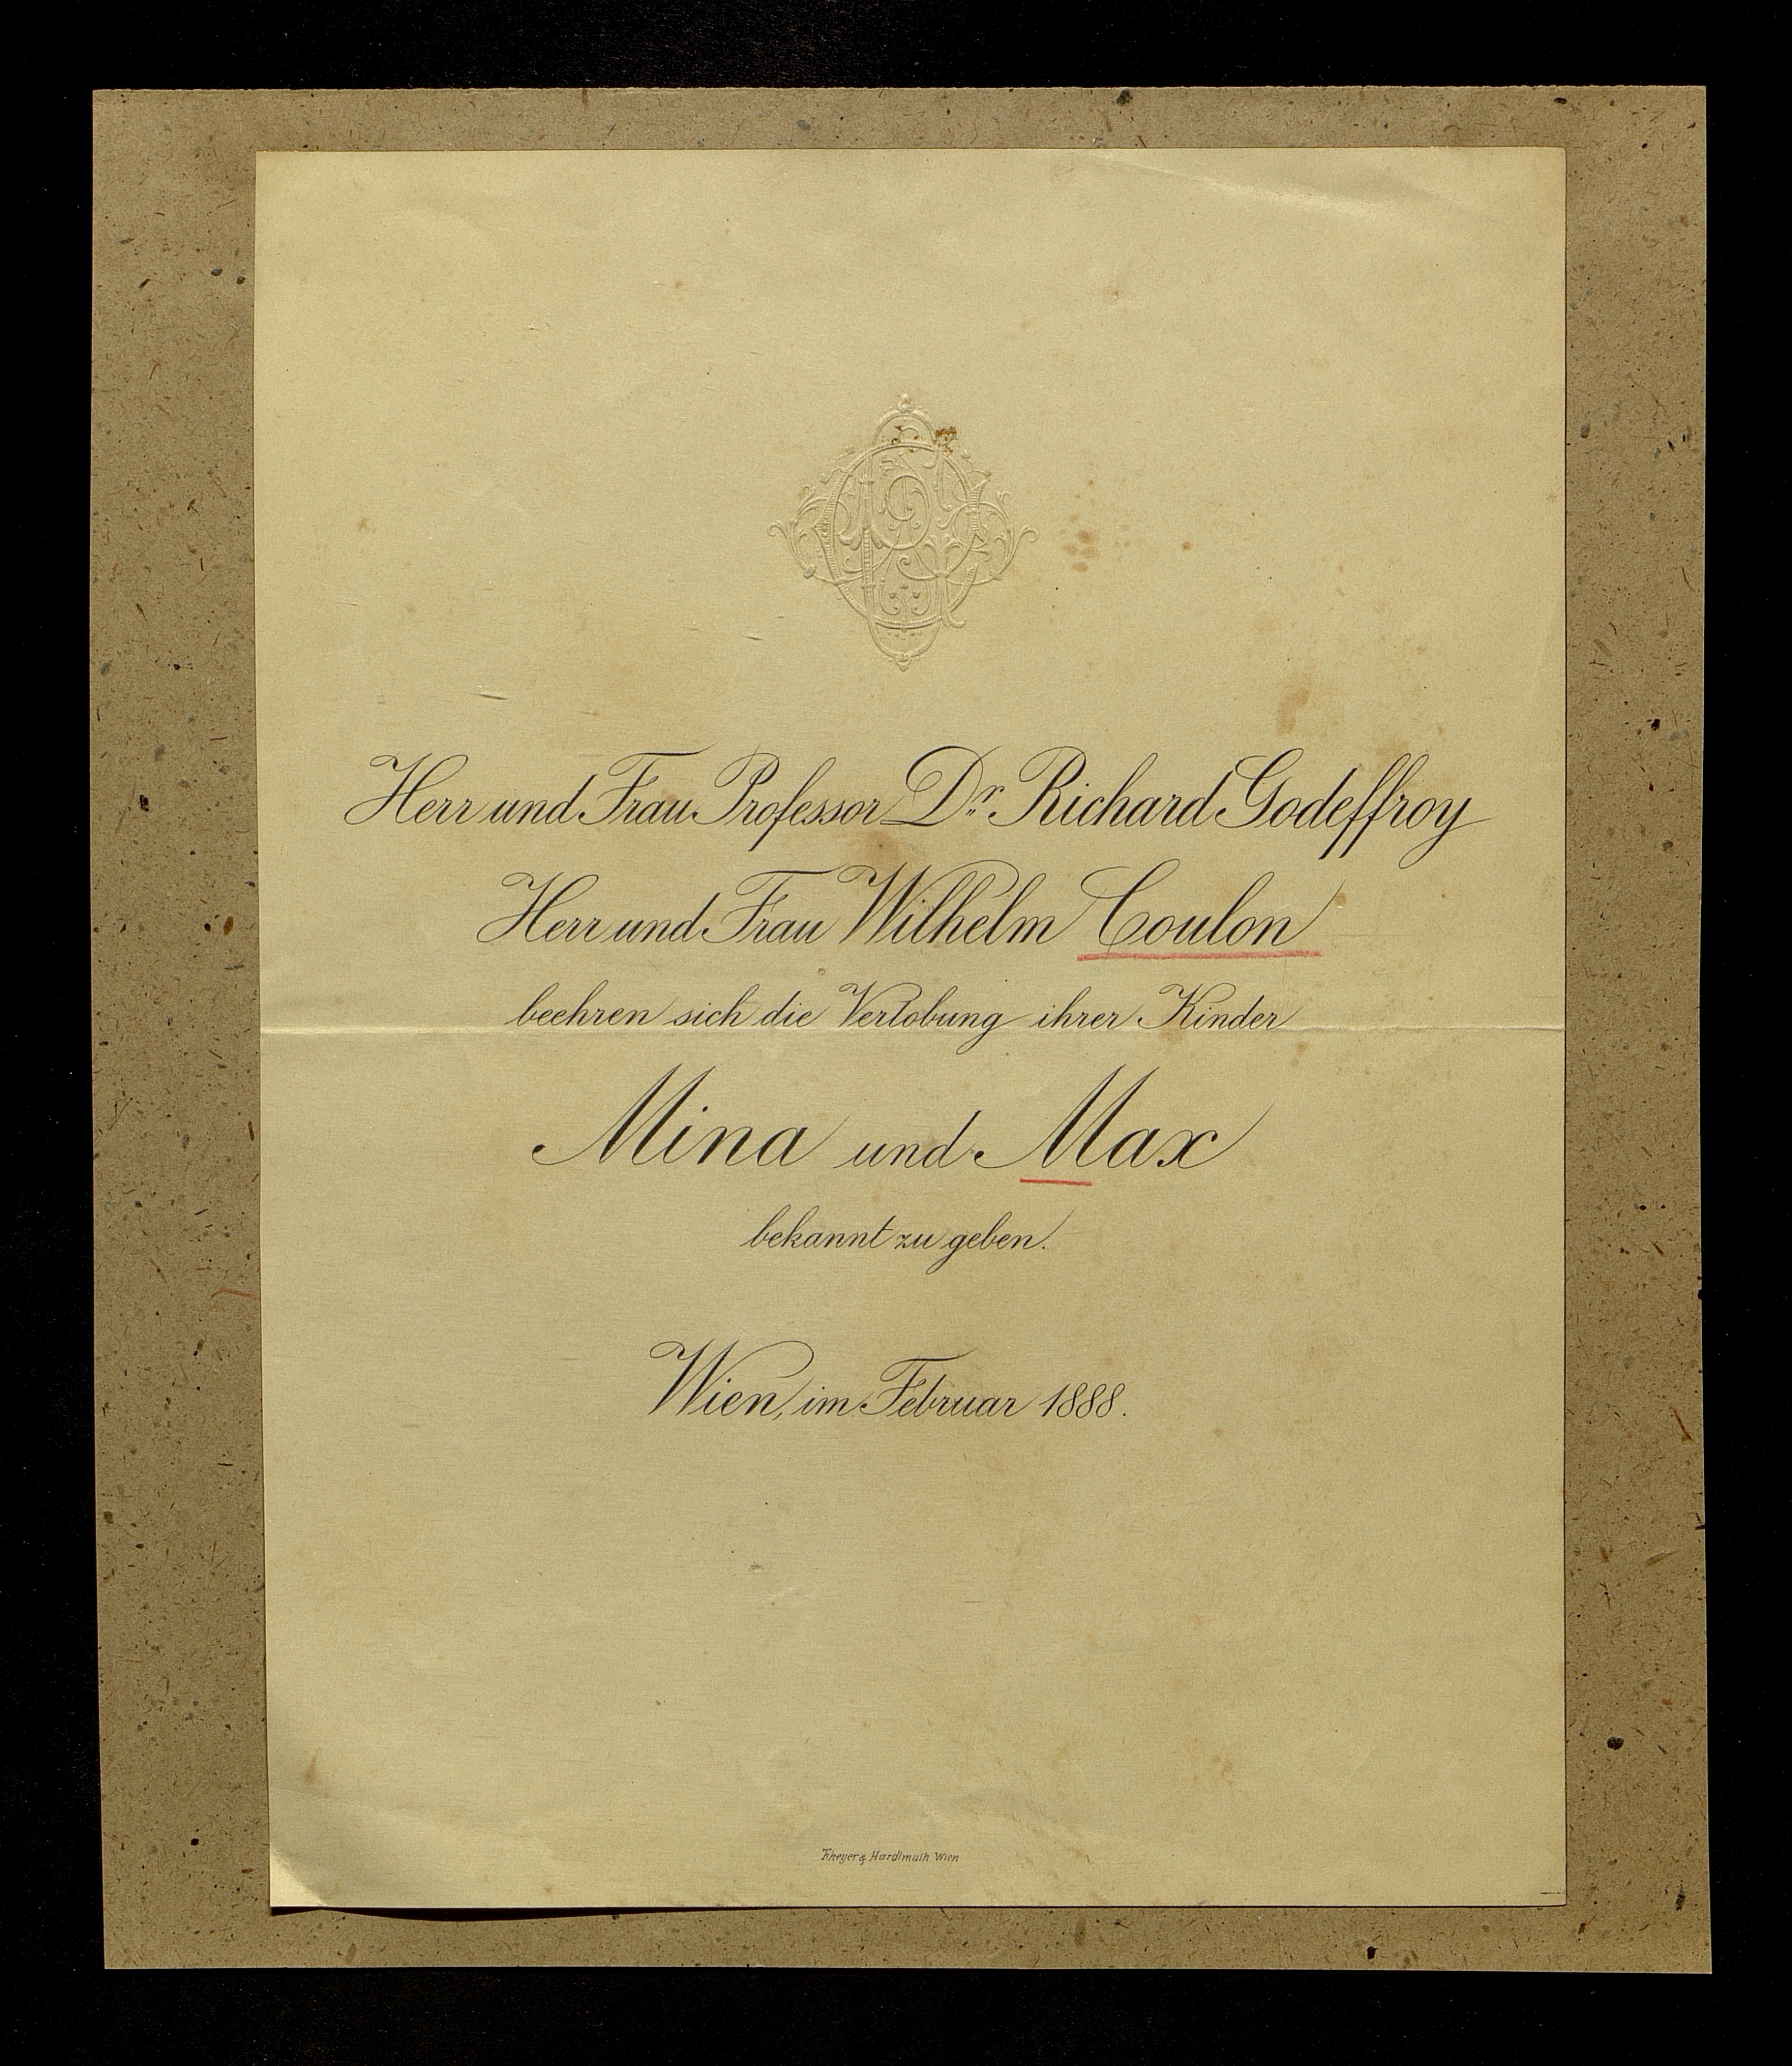 Herr und Frau Professor Dr. Richard Godeffroy
Herr und Frau Wilhelm Coulon
beehren sich die Verlobung ihrer Kinder
Mina und Max
bekannt zu geben.
Wien, im Februar 1888.
Theyer & Hardtmuth Wien